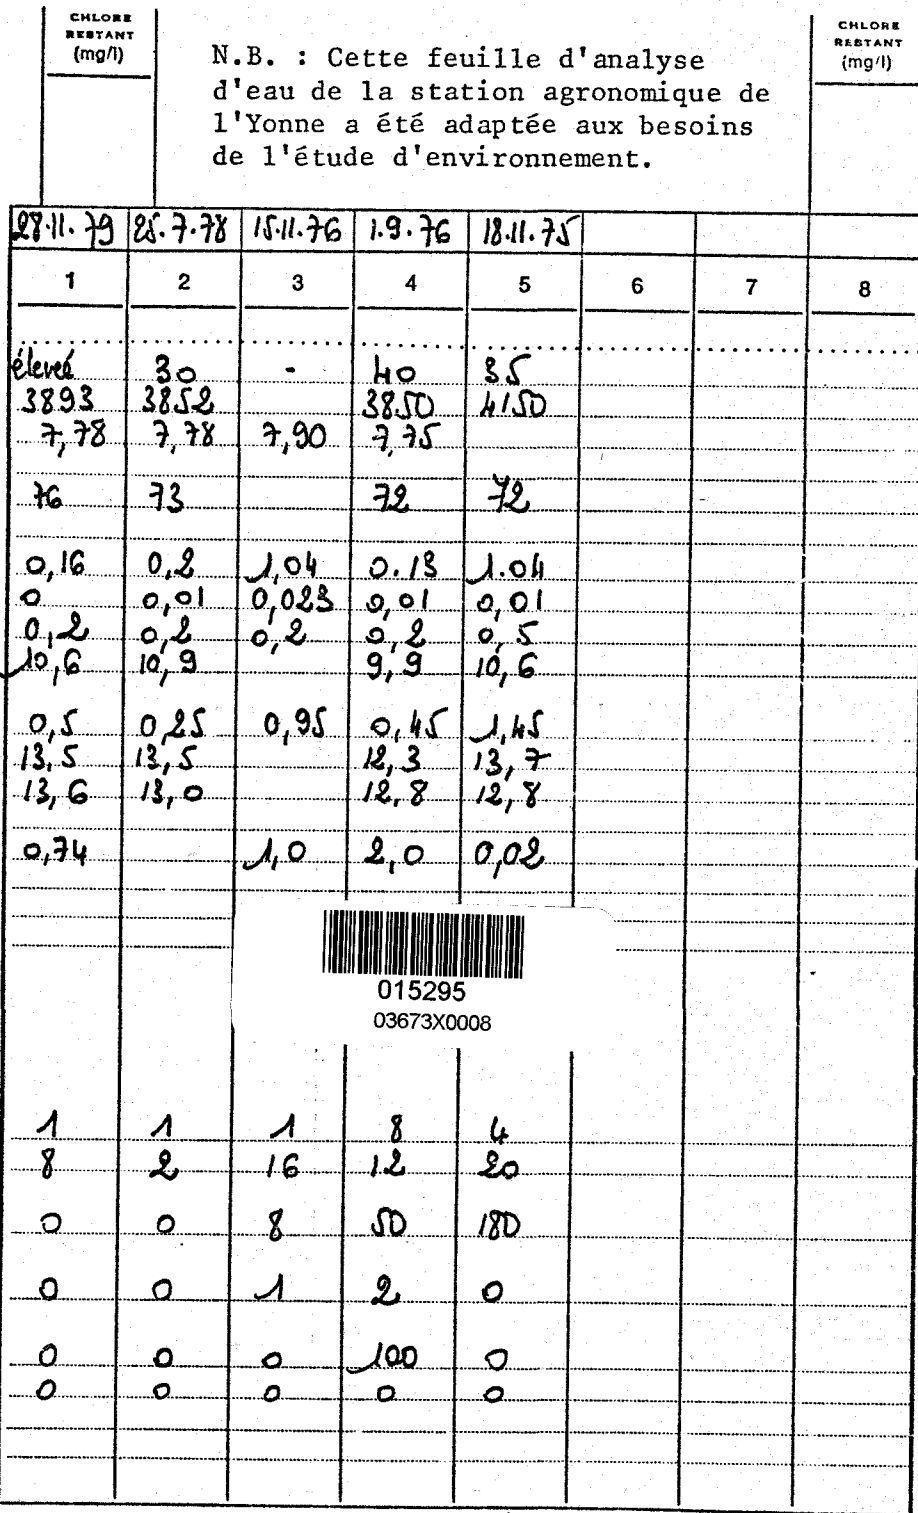 CHLORE
RESTANT
(mg/l)
N.B. : Cette feuille d'analyse
d'eau de la station agronomique de
l'Yonne a été adaptée aux besoins
de l'étude d'environnement.
CHLORE
RESTANT
(mg/l)
28.11.79 25.7.78 15.11.76 1.9.76 18.11.75
1 2 3 4 5 6 7 8
élevée 30 - 40 35
3893 3852 3850 4150
7,78 7,78 7,90 7,75
76 73 72 72
0,16 0,2 1,04 0.13 1.04
0 0,01 0,023 0,01 0,01
0,2 0,2 0,2 0,2 0,5
10,6 10,9 9,9 10,6
0,5 0,25 0,95 0,45 1,45
13,5 13,5 12,3 13,7
13,6 13,0 12,8 12,8
0,74 1,0 2,0 0,02
015295
03673X0008
1 1 1 8 4
8 2 16 12 20
0 0 8 50 180
0 0 1 2 0
0 0 0 100 0
0 0 0 0 0